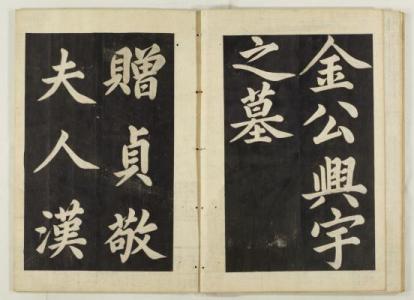 金公興宇
之墓
贈貞敬
夫人漢